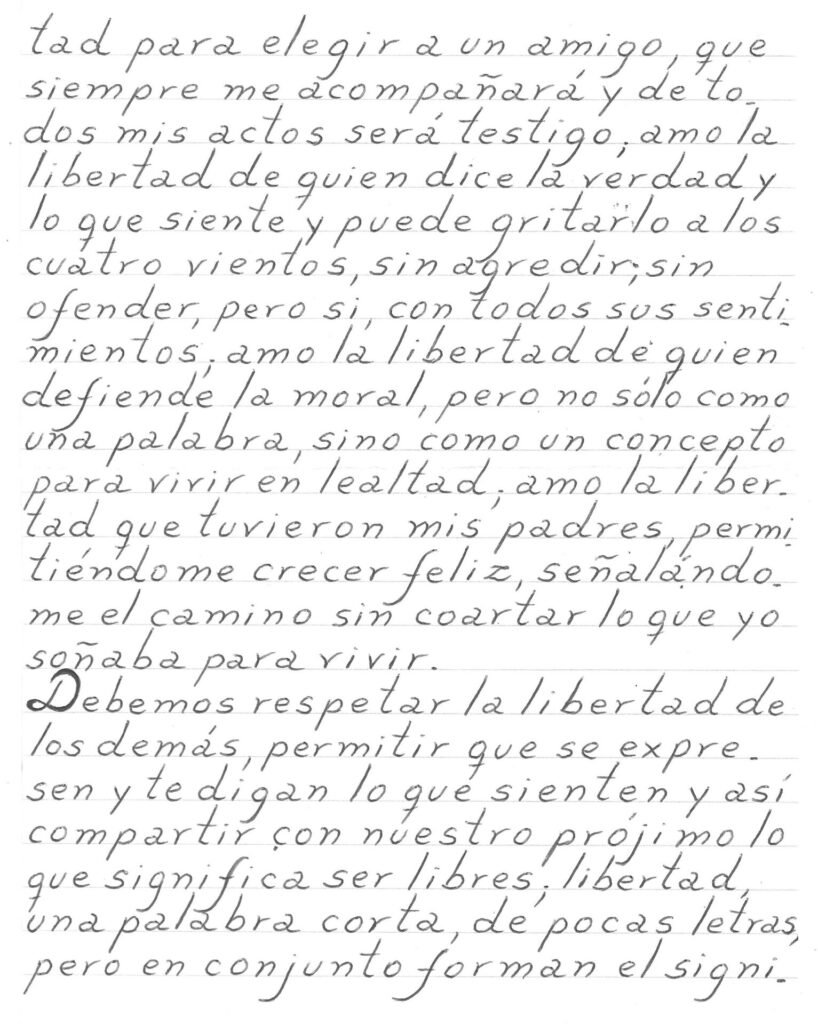 tad para elegir a un amigo, que
siempre me acompañará y de to-
dos mis actos será testigo; amo la
libertad de quien dice la verdad y
lo que siente y puede gritarlo a los
cuatro vientos, sin agredir; sin
ofender, pero si, con todos sus senti-
mientos; amo la libertad de quien
defiende la moral, pero no sólo como
una palabra, sino como un concepto
para vivir en lealtad; amo la liber-
tad que tuvieron mis padres, permi-
tiéndome crecer feliz, señalándo-
me el camino sin coartar lo que yo
soñaba para vivir.
Debemos respetar la libertad de
los demás, permitir que se expre-
sen y te digan lo que sienten y así
compartir con nuestro prójimo lo
que significa ser libres; libertad,
una palabra corta, de pocas letras,
pero en conjunto forman el signi-